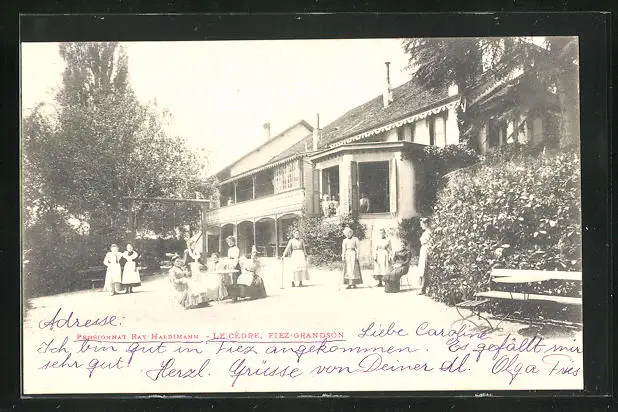 Adresse:
PENSIONNAT RAY-HALDIMANN - LE CÈDRE, FIEZ-GRANDSON
Liebe Caroline
Ich bin gut in Fiez angekommen. Es gefällt mir
sehr gut! Herzl. Grüsse von Deiner dl. Olga